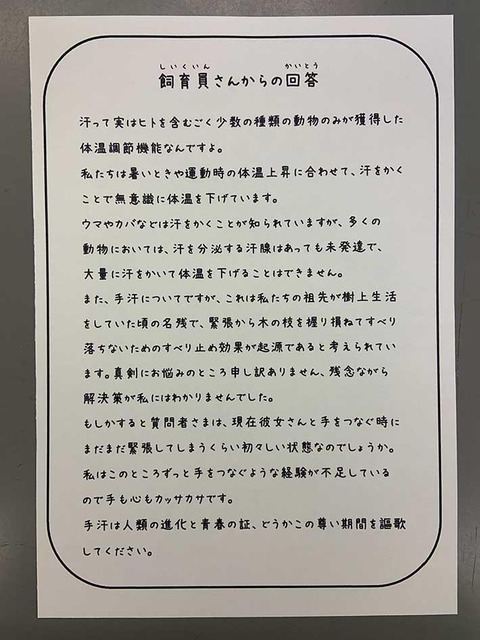 しいくいん かいとう
飼育員さんからの回答
汗って実はヒトを含むごく少数の種類の動物のみが獲得した
体温調節機能なんですよ。
私たちは暑いときや運動時の体温上昇に合わせて、汗をかく
ことで無意識に体温を下げています。
ウマやカバなどは汗をかくことが知られていますが、多くの
動物においては、汗を分泌する汗腺はあっても未発達で、
大量に汗をかいて体温を下げることはできません。
また、手汗についてですが、これは私たちの祖先が樹上生活
をしていた頃の名残で、緊張から木の枝を握り損ねてすべり
落ちないためのすべり止め効果が起源であると考えられてい
ます。真剣にお悩みのところ申し訳ありません、残念ながら
解決策が私にはわかりませんでした。
もしかすると質問者さまは、現在彼女さんと手をつなぐ時に
まだまだ緊張してしまうくらい初々しい状態なのでしょうか。
私はこのところずっと手をつなぐような経験が不足している
ので手も心もカッサカサです。
手汗は人類の進化と青春の証、どうかこの尊い期間を謳歌
してください。